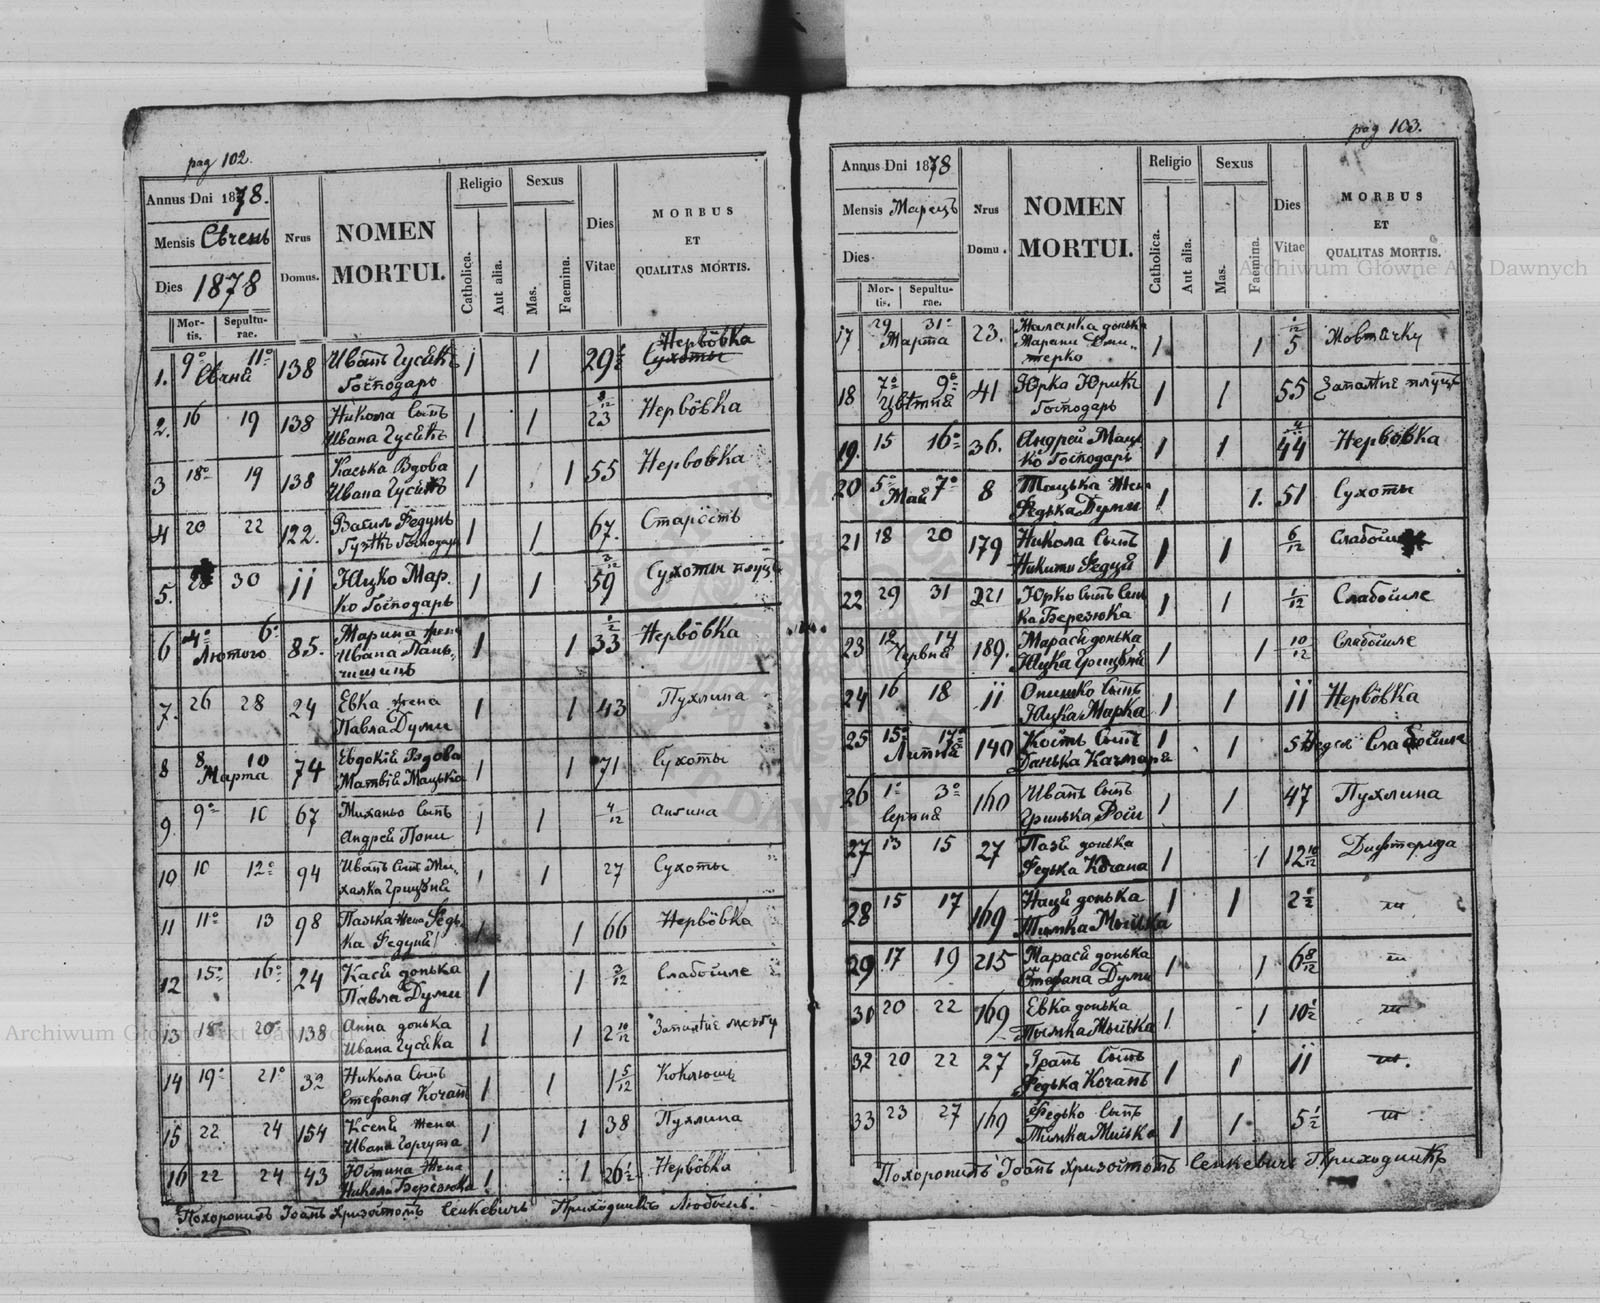 pag 102.
Annus Dni 1878.
Mensis Сѣчень
Dies 1878
Mortis. Sepulturae.
Nrus Domus.
NOMEN MORTUI.
Religio
Catholica. Aut alia.
Sexus
Mas. Faemina.
Dies Vitae
MORBUS
ET
QUALITAS MORTIS.
Нервôвка
1. 9° 11° 138 Иванъ Гусакъ 1 1 29 1/2 Сухоты
Сѣчня Господарь
2. 16 19 138 Никола сынъ 1 1 23 8/12 Нервôвка
Ивана Гусакъ
3 18° 19 138 Каська Вдова 1 1 55 Нервовка
Ивана Гусакъ
4 20 22 122. Василь Федунь 1 1 67. Старôсть
Господарь
5. 28 30 11 Юцко Мар- 1 1 59 Сухоты плуцъ
ко Господарь
6 4° 6° 85. Марина жена 1 1 33 1/2 Нервôвка
Лютого Ивана Пань-
чишинъ
7. 26 28 24 Евка жена 1 1 43 Пухлина
Павла Думи
8 8 10 74 Евдокія Вдова 1 1 71 Сухоты
Марта Матвія Мацька
9 9° 10 67 Миханьо сынъ 1 1 4/12 Ангина
Андрея Пони
10 10 12° 94 Иванъ сынъ Ми- 1 1 27 Сухоты
халка Грицкнѣ
11 11° 13 98 Пазька жена Федь- 1 1 66 Нервôвка
ка Федуня
12 15° 16° 24 Кася донька 1 1 3/12 Слабôсиле
Павла Думи
13 18 20 138 Анна донька 1 1 2 10/12 Запаленіе мозгу
Ивана Гусака
14 19° 21° 32 Никола сынъ 1 1 1 5/12 Коклюшъ
Стефана Кочанъ
15 22 24 154 Ксеня жена 1 1 38 Пухлина
Ивана Горгута
16 22 24 43 Юстина жена 1 1 26 1/2 Нервôвка
Николи Березюка
Похоронилъ Іоанъ Хризостомъ Сенкевичъ Приходникъ Любѣнь.
pag 103.
Annus Dni 1878
Mensis Марецъ
Dies
Mortis. Sepulturae.
Nrus Domu.
NOMEN MORTUI.
Religio
Catholica. Aut alia.
Sexus
Mas. Faemina.
Dies Vitae
MORBUS
ET
QUALITAS MORTIS.
17 29 31° 23. Маланка донька 1 1 5 1/12 Жовтачку
Марта Марини Дми-
терко
18 7° 9° 41 Юрко Юрикъ 1 1 55 Запаленіе плуцъ
Цвѣтня Господарь
19. 15 16° 36. Андрей Мац- 1 1 44 Нервôвка
ко Господарь
20 5° 7° 8 Тацька жена 1 1. 51 Сухоты
Май Федька Думи
21 18 20 179 Никола сынъ 1 1 6/12 Слабôсиле
Никити Федуня
22 29 31 221 Юрко сынъ Сень- 1 1 1/12 Слабôсиле
ка Березюка
23 12 14 189. Марася донька 1 1 10/12 Слабôсиле
Червня Юцка Грицкнѣ
24 16 18 11 Онишко сынъ 1 1 11 Нервôвка
Юцка Марка
25 15° 17° 140 Кость сынъ 1 1 5 Недѣл Слабôсиле
Липня Данька Качмаря
26 1° 3° 160 Иванъ сынъ 1 1 47 Пухлина
Серпня Гринька Роси
27 13 15 27 Пазя донька 1 1 12 10/12 Дифтеріда
Федька Кочана
28 15 17 169 Наця донька 1 1 2 1/2 —"—
Тимка Миська
29 17 19 215 Марася донька 1 1 6 8/12 —"—
Стефана Думи
31 20 22 169 Евка донька 1 1 10 1/2 —"—
Тымка Миська
32 20 22 27 Гранъ сынъ 1 1 11 —"—
Федька Кочанъ
33 23 27 169 Федько сынъ 1 1 5 1/2 —"—
Тимка Миська
Похоронилъ Іоанъ Хризостомъ Сенкевичъ Приходникъ
Archiwum Główne Akt Dawnych
Archiwum Główne Akt Dawnych